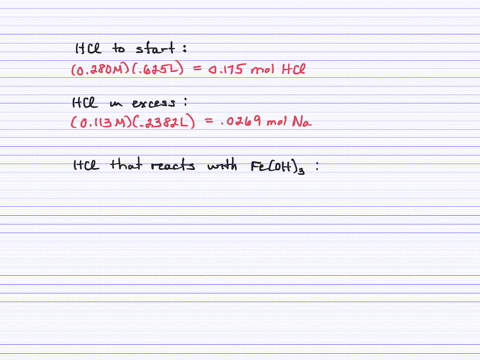 HCl to start:
(0.280M)(.625L) = 0.175 mol HCl
HCl in excess:
(0.113M)(.2382L) = .0269 mol Na
HCl that reacts with Fe(OH)₃ :